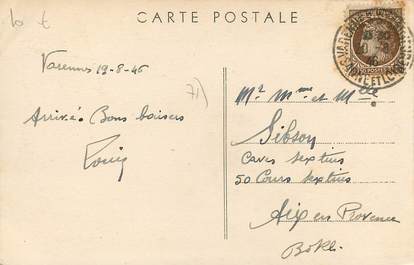 CARTE POSTALE
Varennes 19-8-46
71)
Arrivé. Bons baisers
Louis
Mr Mme et Mlle
Sibson
Caves Sextius
50 Cours Sextius
Aix en Provence
SAONE ET LOIRE